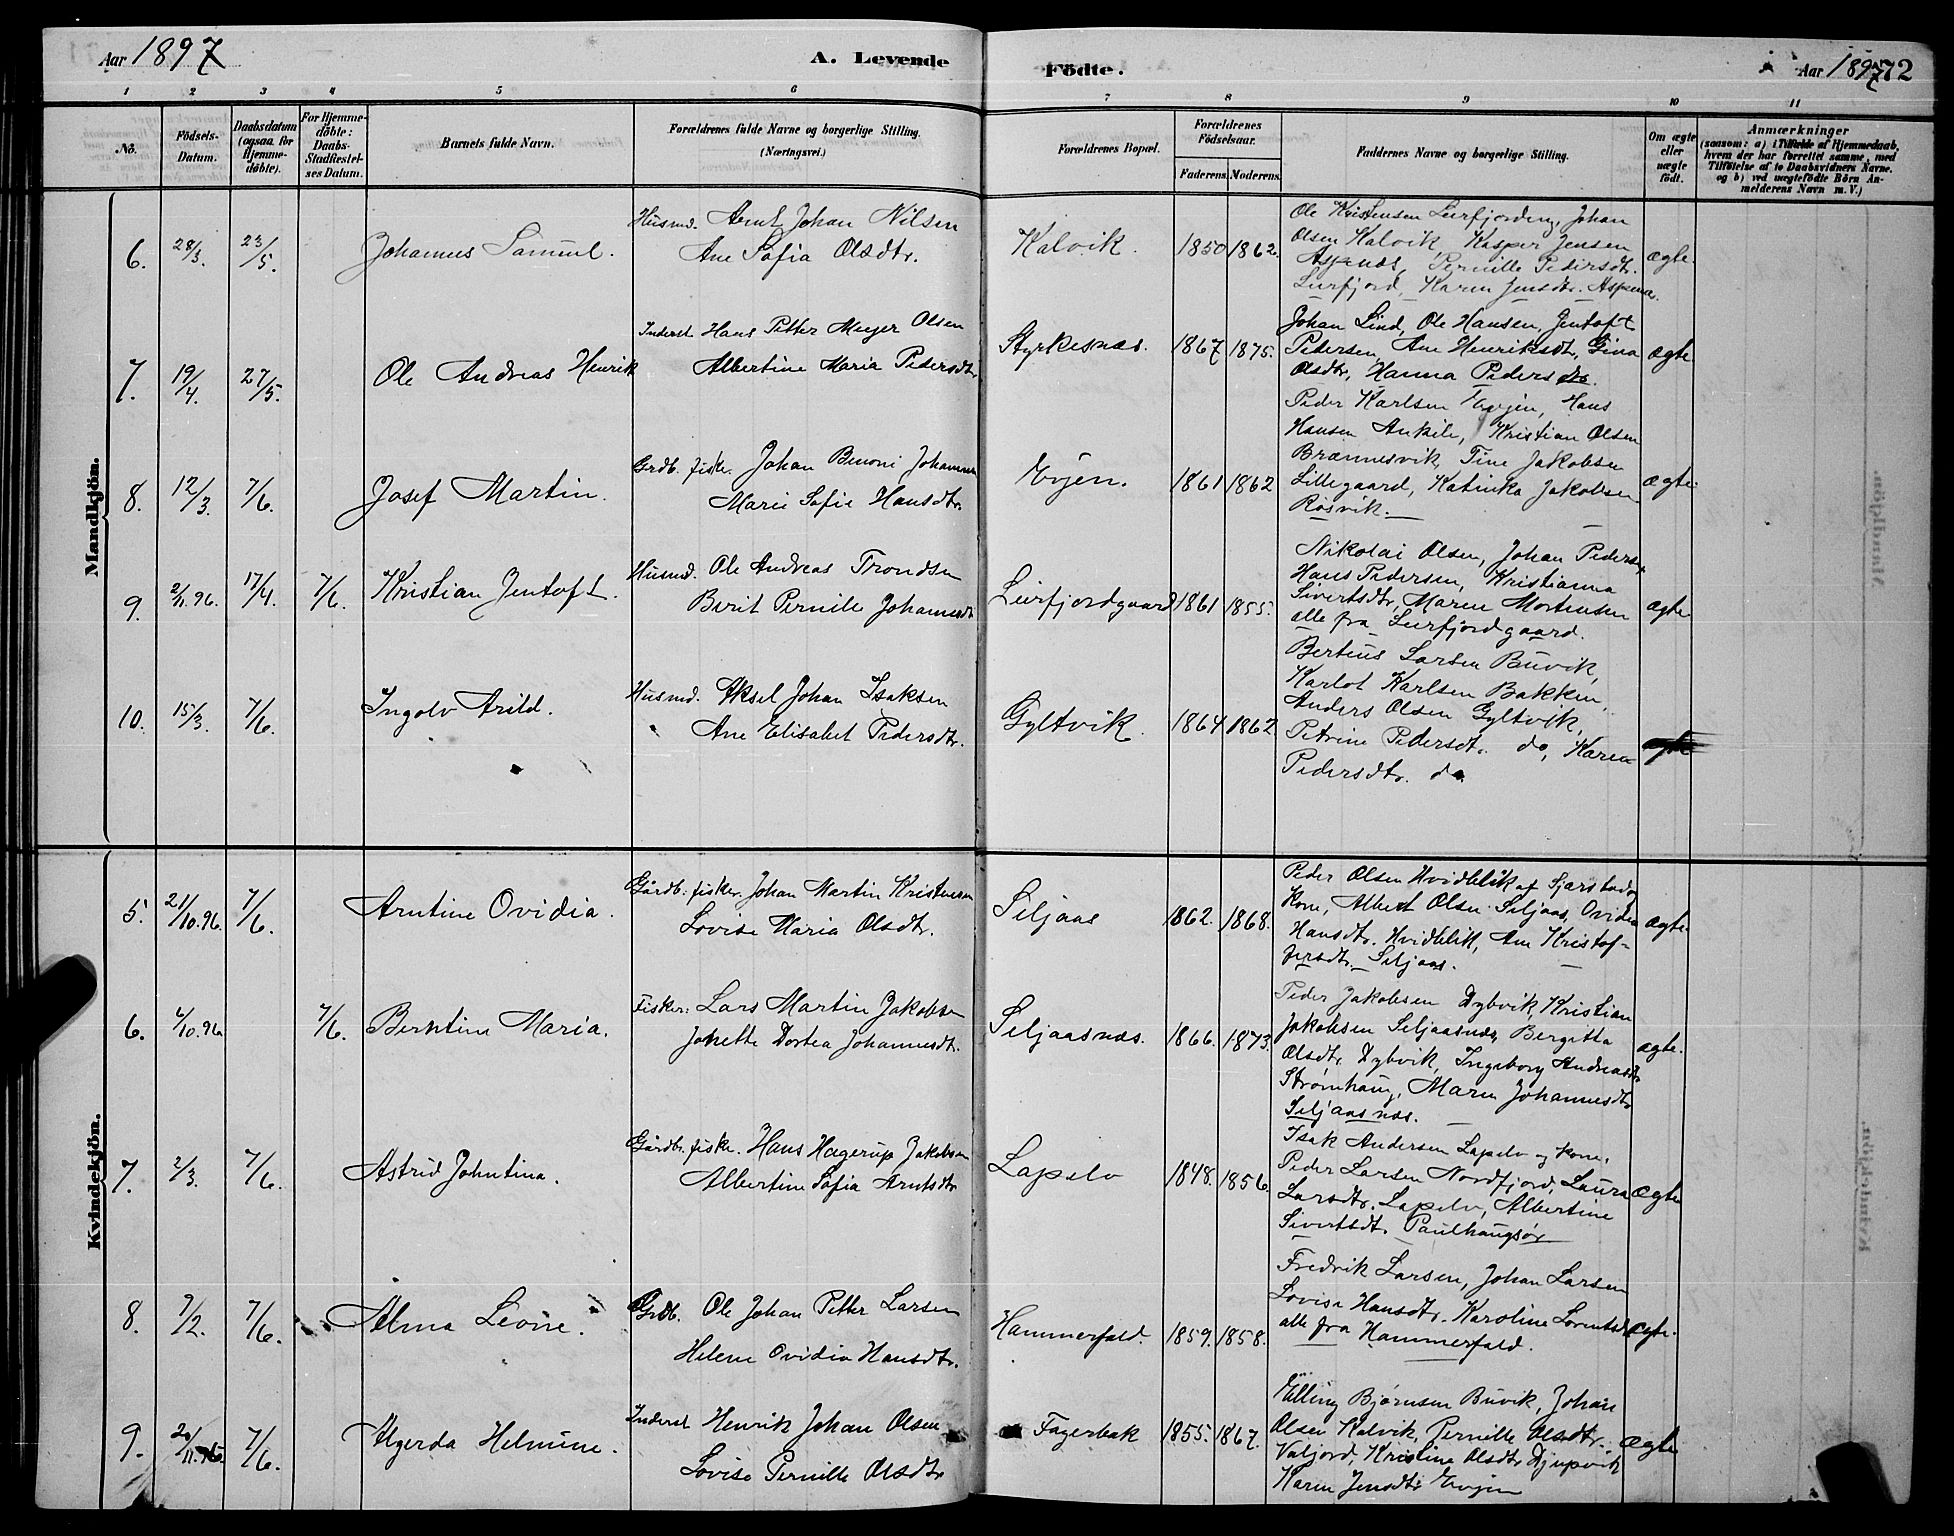 Aar 1897
A. Levende
Födte.
Aar 1897
72
1 2 3 4 5 6 7 8 9 10 11
No.
Födsels-Datum.
Daabsdatum (ogsaa for Hjemmedöbte).
For Hjemmedöbte: Daabs-Stadfæstelses Datum.
Barnets fulde Navn.
Forældrenes fulde Navne og borgerlige Stilling.
(Næringsvei.)
Forældrenes Bopæl.
Forældrenes Födselsaar.
Faderens. Moderens.
Faddernes Navne og borgerlige Stilling.
Om ægte eller uægte födt.
Anmærkninger
(saasom: a) i Tilfælde af Hjemmedaab,
hvem der har forrettet samme, med
Tilföielse af to Daabsvidners Navne.
og b) ved uægtefödte Börn Anmelderens Navn m. V.)
Mandkjön.
6. 28/3. 23/5. Johannes Samuel. Husmd. Arnt Johan Nilsen
Ane Sofia Olsdtr.
Kalvik. 1850 1862.
Ole Kristensen Leirfjorden, Johan
Olsen Kalvik, Kasper Jensen
Aspenæs, Pernille Pedersdtr.
Leirfjord, Karen Jensdtr. Aspenæs.
ægte.
7. 19/4. 27/5. Ole Andreas Henrik
Inderst Hans Petter Meyer Olsen
Albertine Maria Pedersdtr
Styrkesnæs. 1867 1875.
Johan Lind, Ole Hansen, Jentoft
Pedersen, Ane Henriksdtr, Gina
Olsdtr, Hanna Pedersdtr.
ægte
8. 12/3. 7/6. Josef Martin.
Grdb. fisker. Johan Benoni Johannesen
Marie Sofie Hansdtr.
Evjen. 1861 1862
Peder Karlsen Evjen, Hans
Hansen Ankile, Kristian Olsen
Brænnesvik, Tine Jakobsen
Lillegaard, Katinka Jakobsen
Røsvik.
ægte.
9. 2/11.96. 17/4. 7/6. Kristian Jentoft.
Husmd. Ole Andreas Trondsen
Berit Pernile Johannesdtr
Leirfjordgaard 1861 1855.
Nikolai Olsen, Johan Pedersen,
Hans Pedersen, Kristianna
Sivertsdtr, Maren Mortensen
alle fra Leirfjordgaard.
ægte.
10. 15/3. 7/6. Ingolv Arild.
Husmd. Aksel Johan Isaksen
Ane Elisabet Pedersdtr.
Gyltvik. 1864 1862
Berteus Larsen Buvik,
Karlot Karlsen Bakken,
Anders Olsen Gyltvik,
Petrine Pedersdtr. do, Karen
Pedersdtr. do.
ægte
Kvindekjön.
5. 21/10.96. 7/6. Arntine Ovidia.
Gårdb. fisker. Johan Martin Kristensen
Lovise Maria Olsdtr.
Seljaas 1862. 1868.
Peder Olsen Hvidblik af Sjærstad og
Kone, Albert Olsen Seljaas, Ovidia
Hansdtr. Hvidblik, Ane Kristof-
fersdtr. Seljaas.
ægte.
6. /10.96 7/6. Berntine Maria.
Fisker: Lars Martin Jakobsen
Johette Dortea Johannesdtr.
Seljaasnæs. 1866. 1873.
Peder Jakobsen Dybvik, Kristian
Jakobsen Seljaasnæs, Bergitta
Olsdtr. Dybvik, Ingeborg Andreasdtr
Strømhaug, Maren Johannesdtr
Seljaasnæs.
ægte.
7. 2/3. 7/6. Astrid Johntina.
Gårdbr. fisker. Hans Hagerup Jakobsen
Albertine Sofia Arntsdtr
Lapelv 1848. 1856.
Isak Andersen Lapelv og Kone,
Peder Larsen Nordfjord, Laura
Larsdtr. Lapelv, Albertine
Sivertsdtr. Paulhaugsør
ægte
8. 7/2. 7/6. Alma Leone.
Grdb. Ole Johan Petter Larsen
Helene Ovidia Hansdtr.
Hammerfald. 1859. 1858.
Fredrik Larsen, Johan Larsen
Lovise Hansdtr. Karoline Lorentsdtr
alle fra Hammerfald.
ægte.
9. 20/11.96. 7/6. Algerda Helmine.
Inderst Henrik Johan Olsen
Lovise Pernille Olsdtr
Fagerbak 1855. 1867.
Elling Bjørnsen Buvik, Johan
Olsen Kalvik, Pernille Olsdtr.
Valjord, Kristine Olsdtr Djupvik
Karen Jensdtr Evjen
ægte